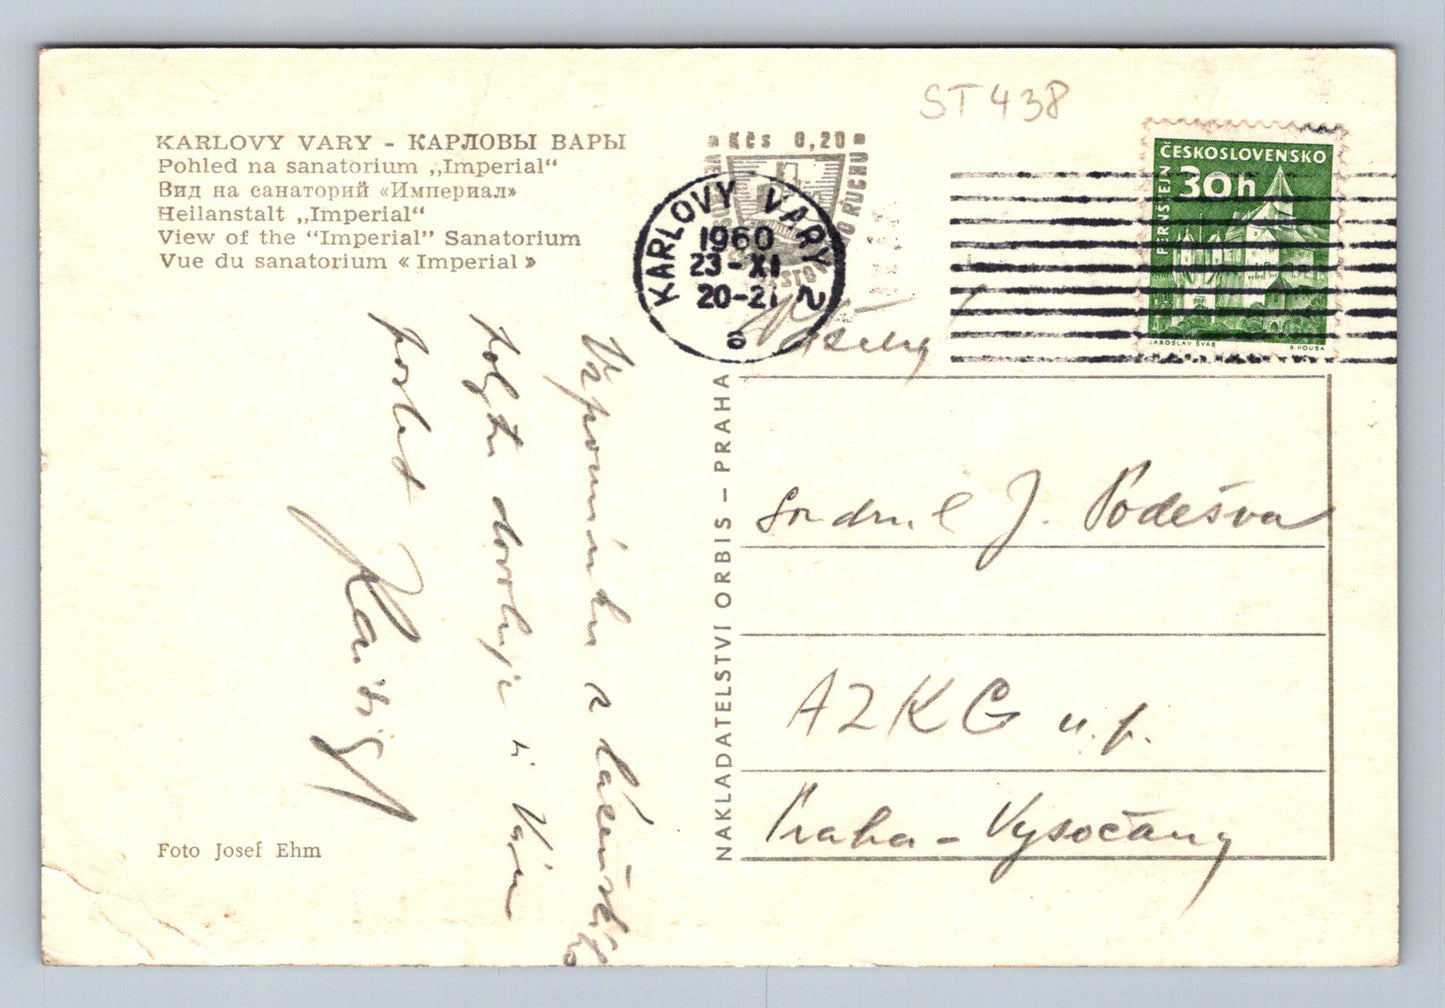 ST 438
KARLOVY VARY - КАРЛОВЫ ВАРЫ
Pohled na sanatorium „Imperial“
Вид на санаторий «Империал»
Heilanstalt „Imperial“
View of the “Imperial” Sanatorium
Vue du sanatorium « Imperial »
Kčs 0,20
KARLOVY VARY 2
1960
23-XI
20-21
e
ČESKOSLOVENSKO
30h
PERNŠTEJN
JAROSLAV ŠVÁB
B. HOUSA
Vážený
Vzpomínku z lázeňského
pobytu dovoluji si Vám
poslat
NAKLADATELSTVÍ ORBIS – PRAHA
J. Podešva
AZKG n.p.
Praha - Vysočany
Foto Josef Ehm